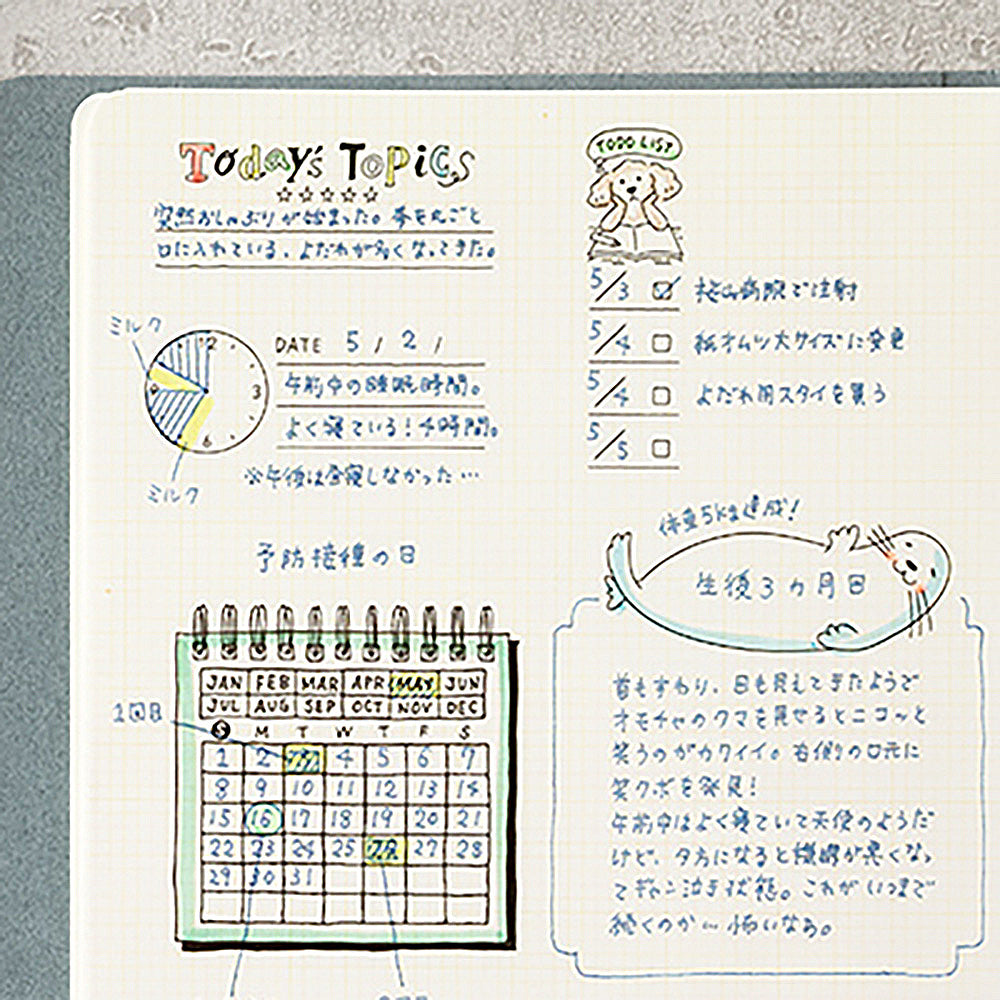 Today's Topics
☆☆☆☆☆
突然おしゃぶりが始まった。拳を丸ごと
口に入れている。よだれが多くなってきた。
ミルク
12
3
6
9
ミルク
DATE 5 / 2 /
午前中の睡眠時間。
よく寝ている！4時間。
※午後は全寝しなかった…
TODO LIST
5/3 ☑ 桜山病院で注射
5/4 □ 紙オムツ大サイズに変更
5/4 □ よだれ用スタイを買う
5/5 □
予防接種の日
1回目
JAN FEB MAR APR MAY JUN
JUL AUG SEP OCT NOV DEC
S M T W T F S
1 2 3 4 5 6 7
8 9 10 11 12 13 14
15 16 17 18 19 20 21
22 23 24 25 26 27 28
29 30 31
体重5kg達成！
生後3ヵ月日
首もすわり、目も見えてきたようで
オモチャのクマを見せるとニコッと
笑うのがカワイイ。右側の口元に
笑クボを発見！
午前中はよく寝ていて天使のようだ
けど、夕方になると機嫌が悪くなっ
てギャン泣き状態。これがいつまで
続くのか〜怖いなぁ。